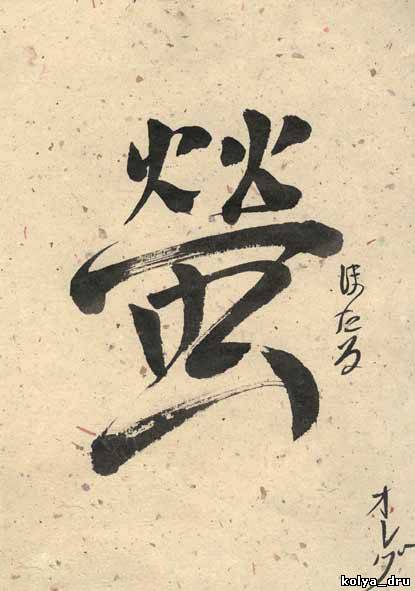 螢
ほたる
オレグ
kolya_dru